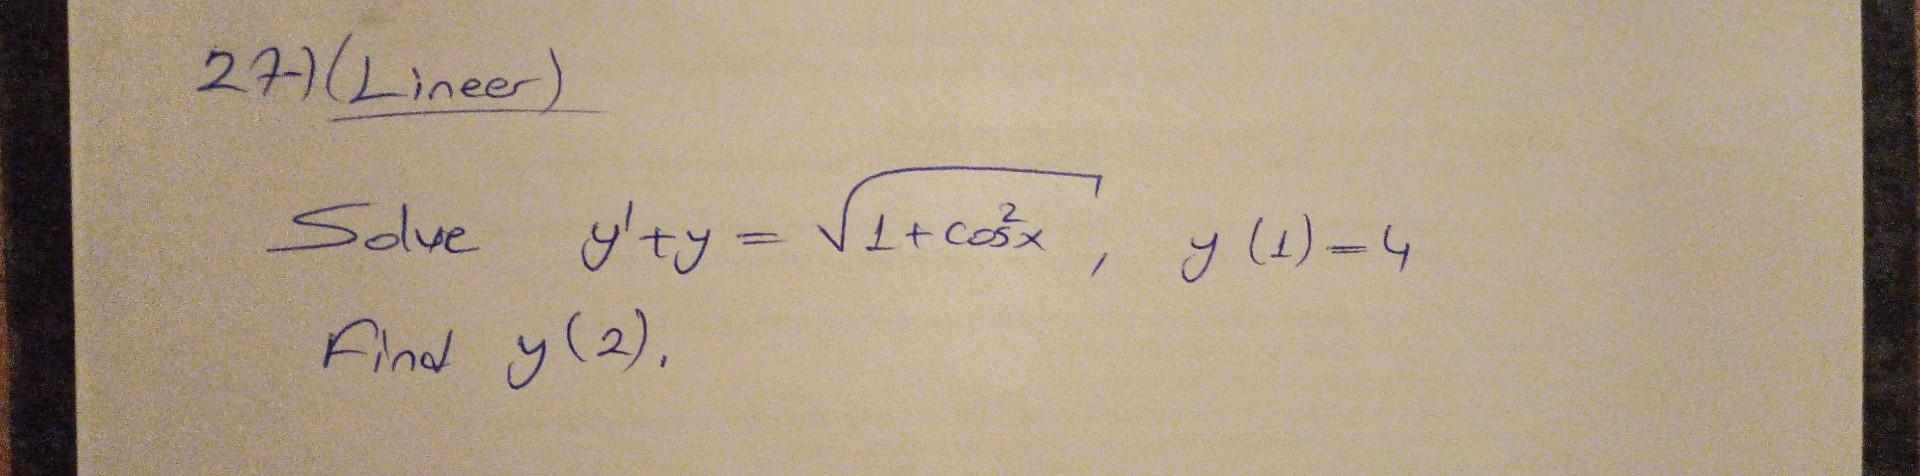 27-) (Lineer)
Solve y' + y = √1 + cos²x , y (1) = 4
Find y (2).